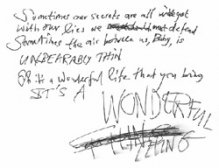 Sometimes our secrets are all we got
With our lies we must defend
Sometimes the air between us, Baby, is
UNBEARABLY THIN
It's a wonderful life that you bring
IT'S A
WONDERFUL
THING